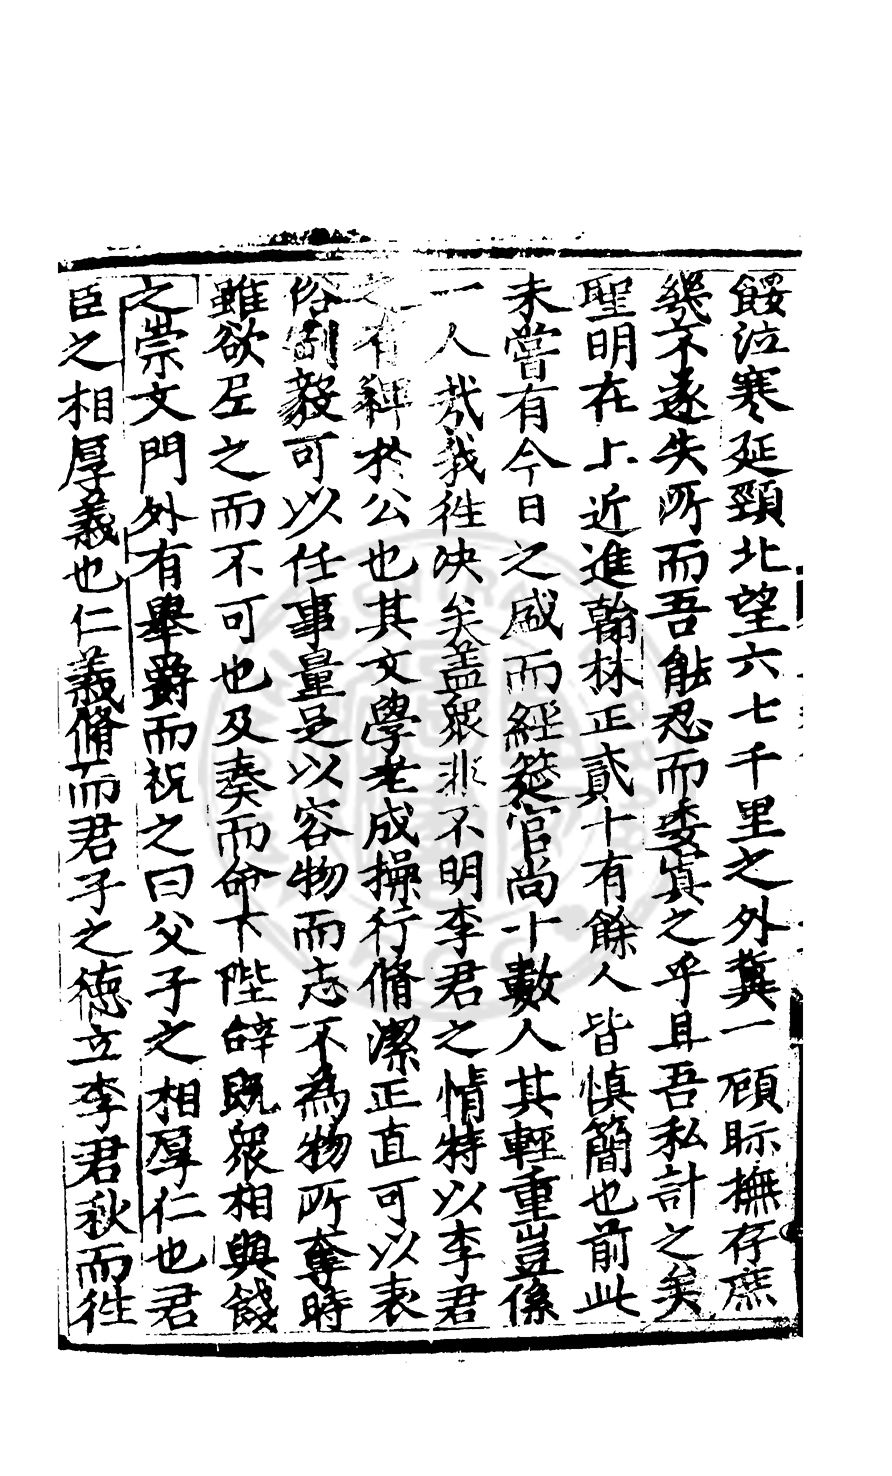 餒泣寒延頸北望六七千里之外冀一顧眎撫存庶
幾不遂失所而吾能忍而委寘之乎且吾私計之矣
聖明在上近進翰林正貳十有餘人皆慎簡也前此
未嘗有今日之盛而經筵官尚十數人其輕重豈係
一人哉我徃决矣蓋衆非不明李君之情特以李君
之有裨於公也其文學老成操行脩潔正直可以表
俗剛毅可以任事量足以容物而志不為物所奪時
雖欲左之而不可也及奏而命下陛辭既衆相與餞
之崇文門外有舉爵而祝之曰父子之相厚仁也君
臣之相厚義也仁義脩而君子之德立李君秋而徃